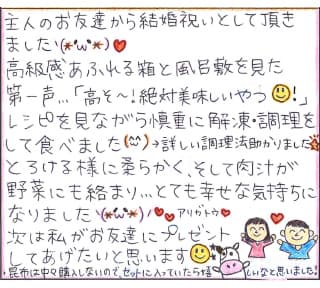 主人のお友達から結婚祝いとして頂き
ました\(*'ω'*)♥
高級感あふれる箱と風呂敷を見た
第一声…「高そ〜!絶対美味しいやつ😊!」
レシピを見ながら慎重に解凍・調理を
して食べました(^^)→詳しい調理法助かりました
とろける様に柔らかく、そして肉汁が
野菜にも絡まり…とても幸せな気持ちに
なりました\(*'ω'*)/♥♥アリガトウ♥
次は私がお友達にプレゼント
してあげたいと思います😊
・昆布は中々購入しないので、セットに入っていたら嬉しいなと思いました!